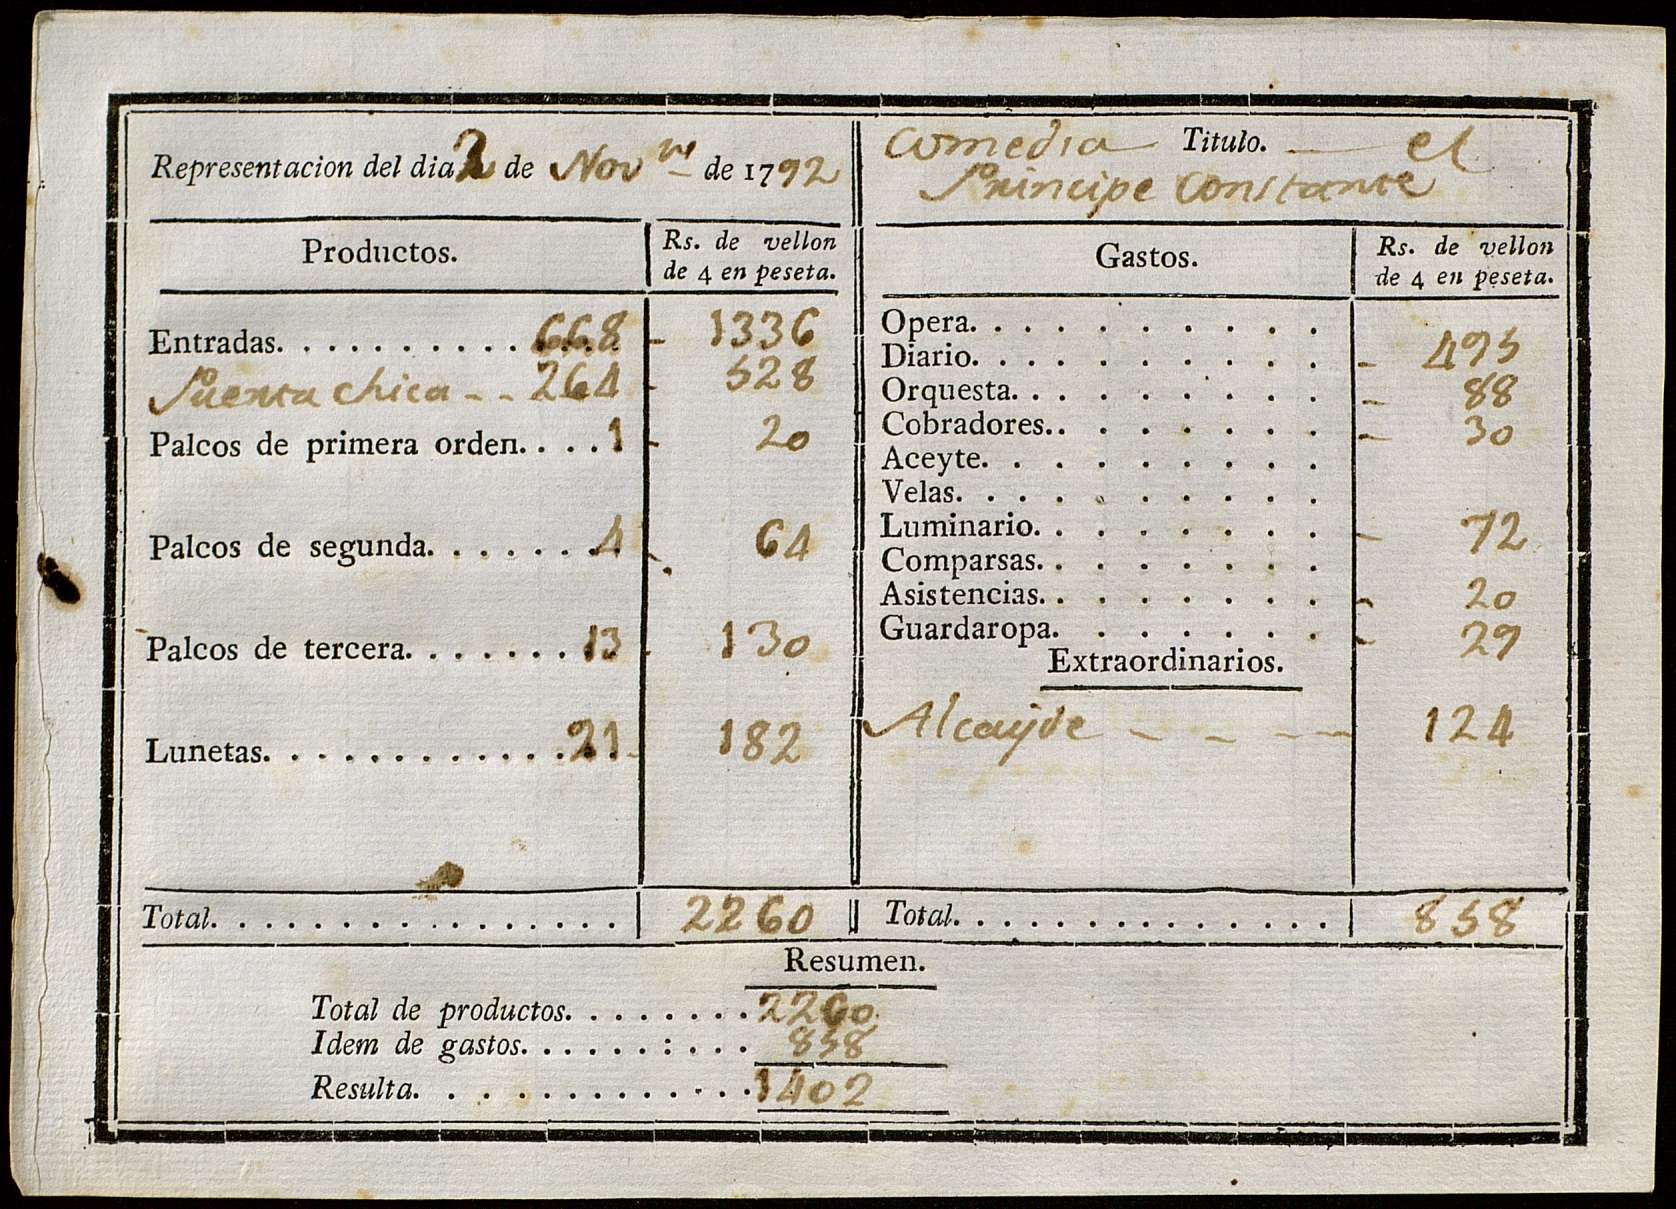 Representacion del dia 2 de Nov.re de 1792
Comedia Titulo. — el
Principe Constante
Productos.
Rs. de vellon
de 4 en peseta.
Entradas. . . . . . . . . . 668 - 1336
Puerta chica - - 264 - 528
Palcos de primera orden. . . . 1 - 20
Palcos de segunda. . . . . . . 4 - 64
Palcos de tercera. . . . . . . 13 - 130
Lunetas. . . . . . . . . . . . 21 - 182
Total. . . . . . . . . . . . . . . . 2260
Gastos.
Rs. de vellon
de 4 en peseta.
Opera. . . . . . . . . .
Diario. . . . . . . . . . - 495
Orquesta. . . . . . . . . - 88
Cobradores. . . . . . . . - 30
Aceyte. . . . . . . . .
Velas. . . . . . . . . .
Luminario. . . . . . . . - 72
Comparsas. . . . . . . .
Asistencias. . . . . . . . - 20
Guardaropa. . . . . . . - 29
Extraordinarios.
Alcayde - - - - 124
Total. . . . . . . . . . . . . . 858
Resumen.
Total de productos. . . . . . . . 2260
Idem de gastos. . . . . . : . . . 858
Resulta. . . . . . . . . . . . . 1402